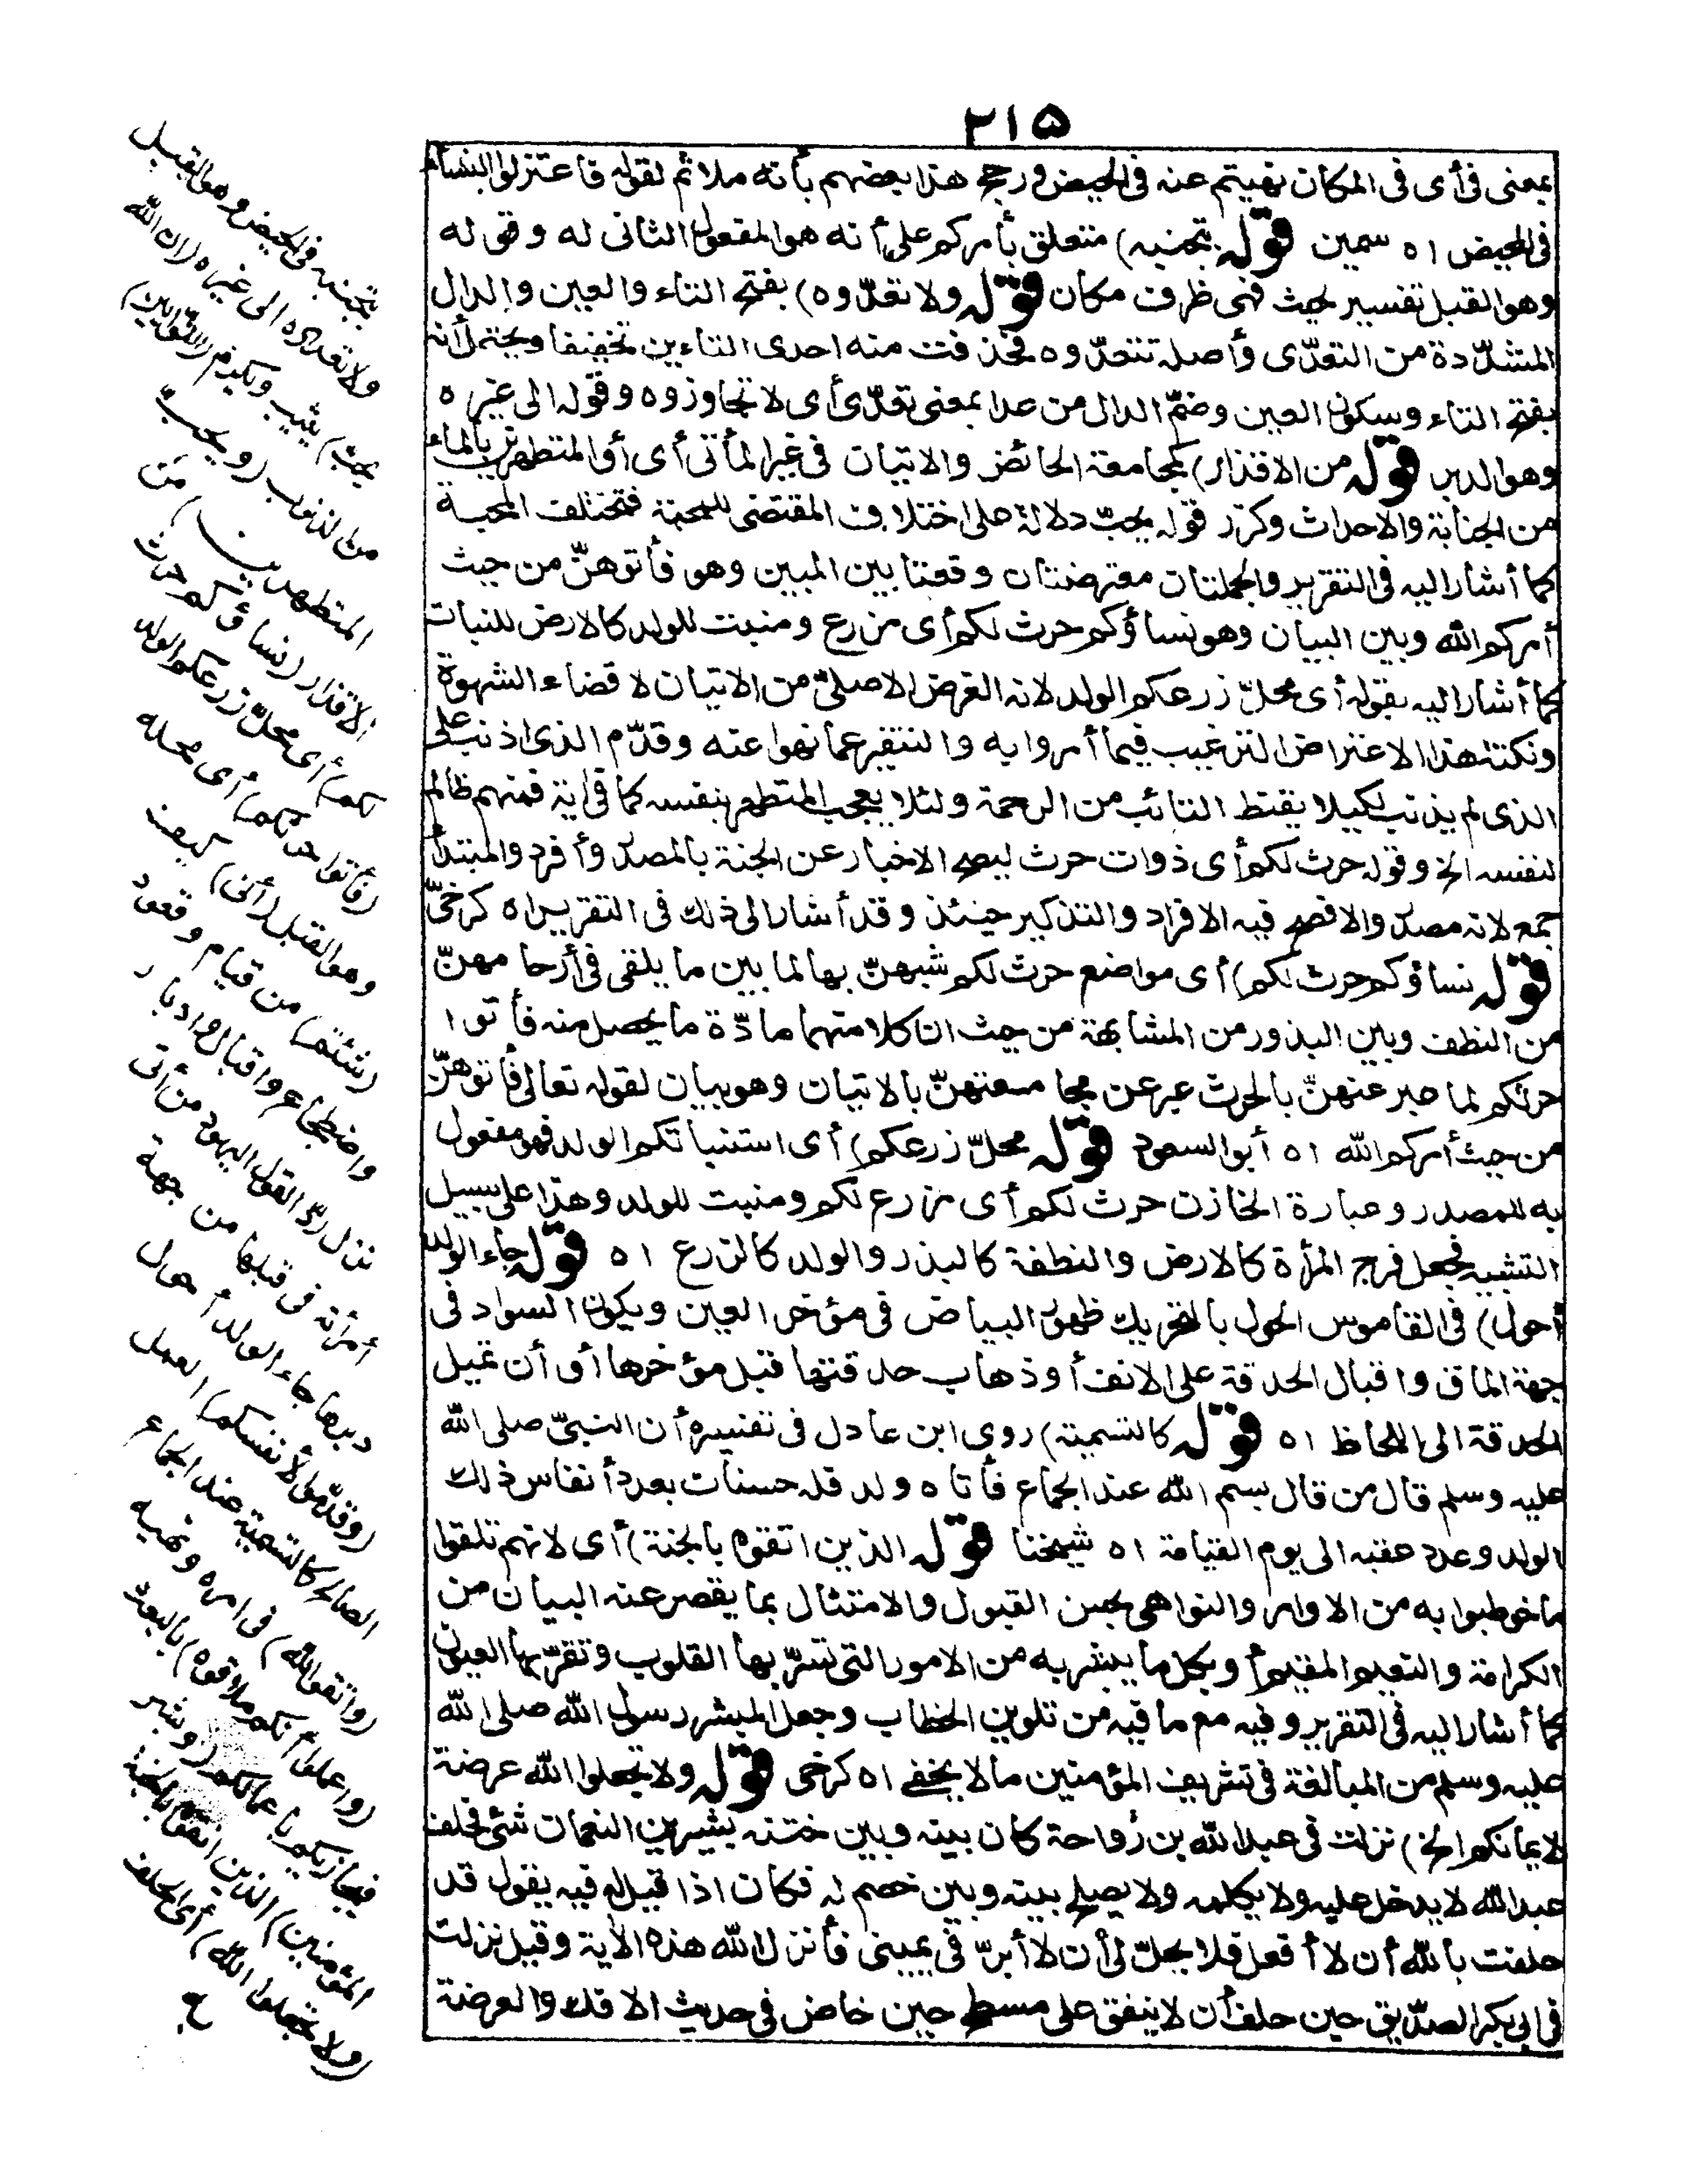 ٢١٥
بمعنى فى أى فى المكان نهيتم عنه فى الحيض ورجح هذا بعضهم بأنه ملائم لقوله فاعتزلوا النساء
فى المحيض اه سمين قوله بتجنبه) متعلق بأمركم على أنه هو المفعول الثانى له وقوله
وهو القبل تفسير لحيث فهى ظرف مكان قوله ولا تعدّوه) بفتح التاء والعين والدال
المشدّدة من التعدّى وأصله تتعدّوه فحذفت منه احدى التاءين تخفيفا ويحتمل أنه
بفتح التاء وسكون العين وضمّ الدال من عدا بمعنى تعدّى أى لا تجاوزوه وقوله الى غيره
وهو الدبر قوله من الاقذار) كمجامعة الحائض والاتيان فى غير المأتى أى أو المتطهرين بالماء
من الجنابة والاحداث وكرّر قوله يحبّ دلالة على اختلاف المقتضى للمحبة فتختلف المحبة
كما أشار اليه فى التقرير والجملتان معترضتان وقعتا بين المبين وهو فأتوهنّ من حيث
أمركم الله وبين البيان وهو نساؤكم حرث لكم أى مزرع ومنبت للولد كالارض للنبات
كما أشار اليه بقوله أى محلّ زرعكم الولد لانه الغرض الاصلىّ من الاتيان لا قضاء الشهوة
ونكتة هذا الاعتراض الترغيب فيما أمروا به والتنفير عما نهوا عنه وقدّم الذى اذنب على
الذى لم يذنب لكيلا يقنط التائب من الرحمة ولئلا يعجب المتطهر بنفسه كما فى آية فمنهم ظالم
لنفسه الخ وقوله حرث لكم أى ذوات حرث ليصح الاخبار عن الجثة بالمصدر وأفرد والمبتدأ
جمع لانه مصدر والافصح فيه الافراد والتذكير حينئذ وقد أشار الى ذلك فى التقرير اه كرخىّ
قوله نساؤكم حرث لكم) أى مواضع حرث لكم شبههنّ بها لما بين ما يلقى فى أرحامهنّ
من النطف وبين البذور من المشابهة من حيث ان كلا منهما مادّة ما يحصل منه فأتوا
حرثكم لما عبر عنهنّ بالحرث عبر عن مجامعتهنّ بالاتيان وهو بيان لقوله تعالى فأتوهنّ
من حيث أمركم الله اه أبو السعود قوله محلّ زرعكم) أى استنباتكم الولد فهو مفعول
به للمصدر وعبارة الخازن حرث لكم أى مزرع لكم ومنبت للولد وهذا على سبيل
التشبيه فجعل فرج المرأة كالارض والنطفة كالبذر والولد كالزرع اه قوله جاء الولد
أحول) فى القاموس الحول بالتحريك ظهور البياض فى مؤخر العين ويكون السواد فى
جهة الماق واقبال الحدقة على الانف أو ذهاب حدقتها قبل مؤخرها أو أن تميل
الحدقة الى اللحاظ اه قوله كالتسمية) روى ابن عادل فى تفسيره أن النبىّ صلى الله
عليه وسلم قال من قال بسم الله عند الجماع فأتاه ولد فله حسنات بعدد أنفاس ذلك
الولد وعدد عقبه الى يوم القيامة اه شيخنا قوله الذين اتقوه بالجنة) أى لانهم تلقوا
ما خوطبوا به من الاوامر والنواهى بحسن القبول والامتثال بما يقصر عنه البيان من
الكرامة والنعيم المقيم أو بكل ما يبشر به من الامور التى تسرّ بها القلوب وتقرّ بها العيون
كما أشار اليه فى التقرير وفيه مع ما فيه من تلوين الخطاب وجعل المبشر رسول الله صلى الله
عليه وسلم من المبالغة فى تشريف المؤمنين ما لا يخفى اه كرخى قوله ولا تجعلوا الله عرضة
لايمانكم الخ) نزلت فى عبد الله بن رواحة كان بينه وبين ختنه بشير بن النعمان شئ فحلف
عبد الله لا يدخل عليه ولا يكلمه ولا يصلح بينه وبين خصم له فكان اذا قيل له فيه يقول قد
حلفت بالله أن لا أفعل فلا يحلّ لى أن لا أبرّ فى يمينى فأنزل الله هذه الآية وقيل نزلت
فى أبى بكر الصدّيق حين حلف أن لا ينفق على مسطح حين خاض فى حديث الافك والعرضة
بتجنبه فى الحيض وهو القبل
ولا تعدوه الى غيره (ان الله
يحب) يثيب ويكرم (التوابين)
من الذنوب (ويحب
المتطهرين) من
الاقذار (نساؤكم حرث
لكم) أى محلّ زرعكم الولد
(فأتوا حرثكم) أى محله
وهو القبل (أنى) كيف
(شئتم) من قيام وقعود
واضطجاع واقبال وادبار
نزل ردّا لقول اليهود من أتى
امرأته فى قبلها من جهة
دبرها جاء الولد أحول
(وقدّموا لأنفسكم) العمل
الصالح كالتسمية عند الجماع
(واتقوا الله) فى امره ونهيه
(واعلموا أنكم ملاقوه) بالبعث
فيجازيكم بأعمالكم (وبشر
المؤمنين) الذين اتقوه بالجنة
(ولا تجعلوا الله) أى الحلف